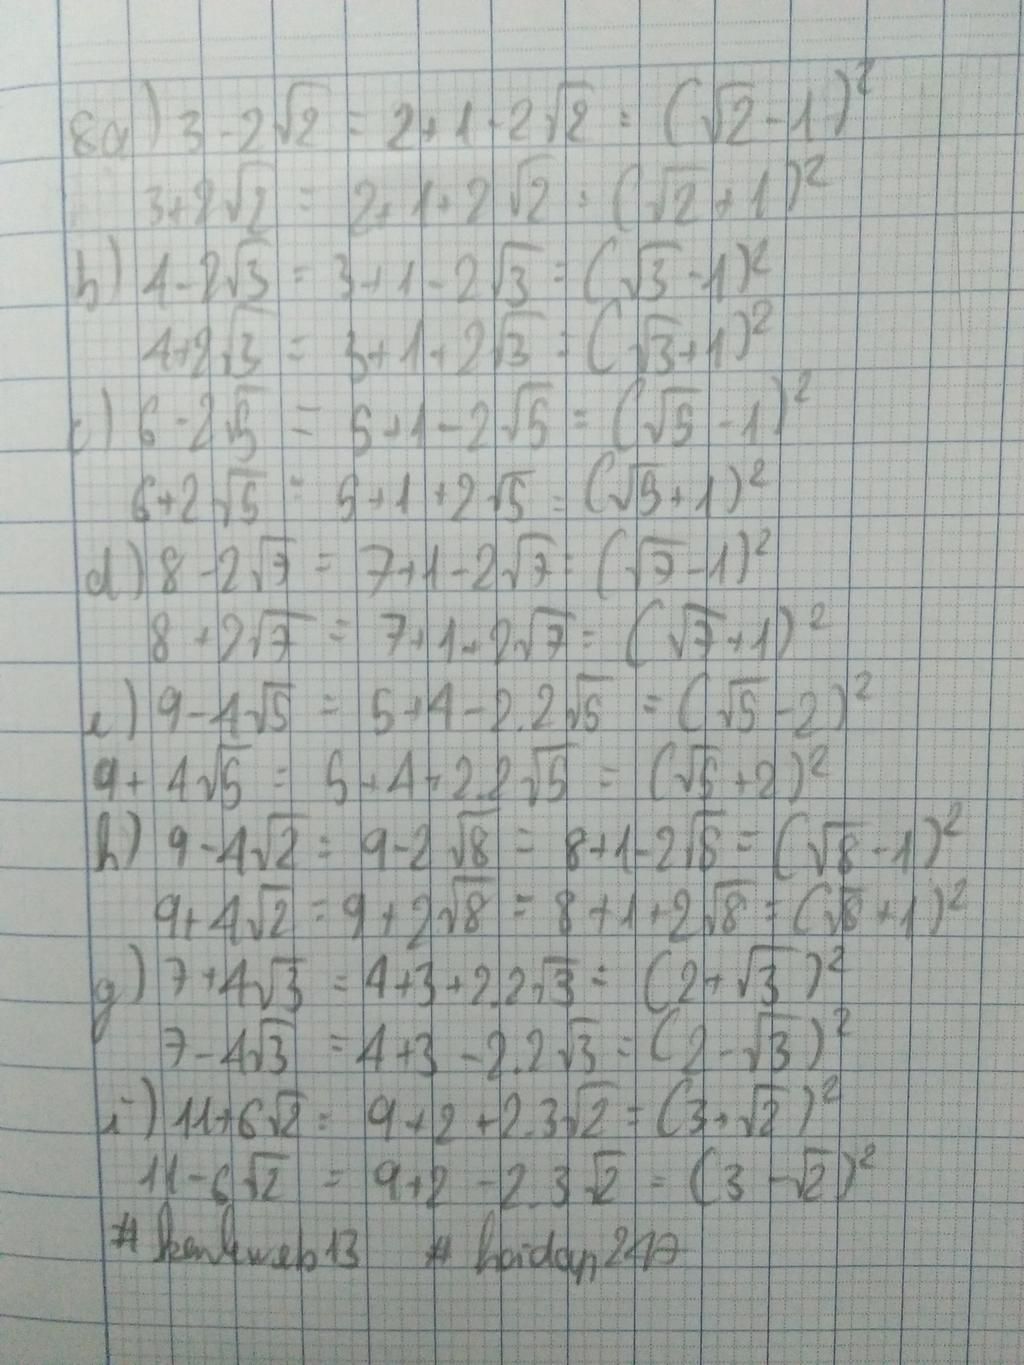 8a) 3-2√2 = 2+1-2√2 = (√2-1)²
3+2√2 = 2+1+2√2 = (√2+1)²
b) 4-2√3 = 3+1-2√3 = (√3-1)²
4+2√3 = 3+1+2√3 = (√3+1)²
c) 6-2√5 = 5+1-2√5 = (√5-1)²
6+2√5 = 5+1+2√5 = (√5+1)²
d) 8-2√7 = 7+1-2√7 = (√7-1)²
8+2√7 = 7+1+2√7 = (√7+1)²
e) 9-4√5 = 5+4-2.2√5 = (√5-2)²
9+4√5 = 5+4+2.2√5 = (√5+2)²
h) 9-4√2 = 9-2√8 = 8+1-2√8 = (√8-1)²
9+4√2 = 9+2√8 = 8+1+2√8 = (√8+1)²
g) 7+4√3 = 4+3+2.2√3 = (2+√3)²
7-4√3 = 4+3-2.2√3 = (2-√3)²
i) 11+6√2 = 9+2+2.3√2 = (3+√2)²
11-6√2 = 9+2-2.3√2 = (3-√2)²
# hoidap247